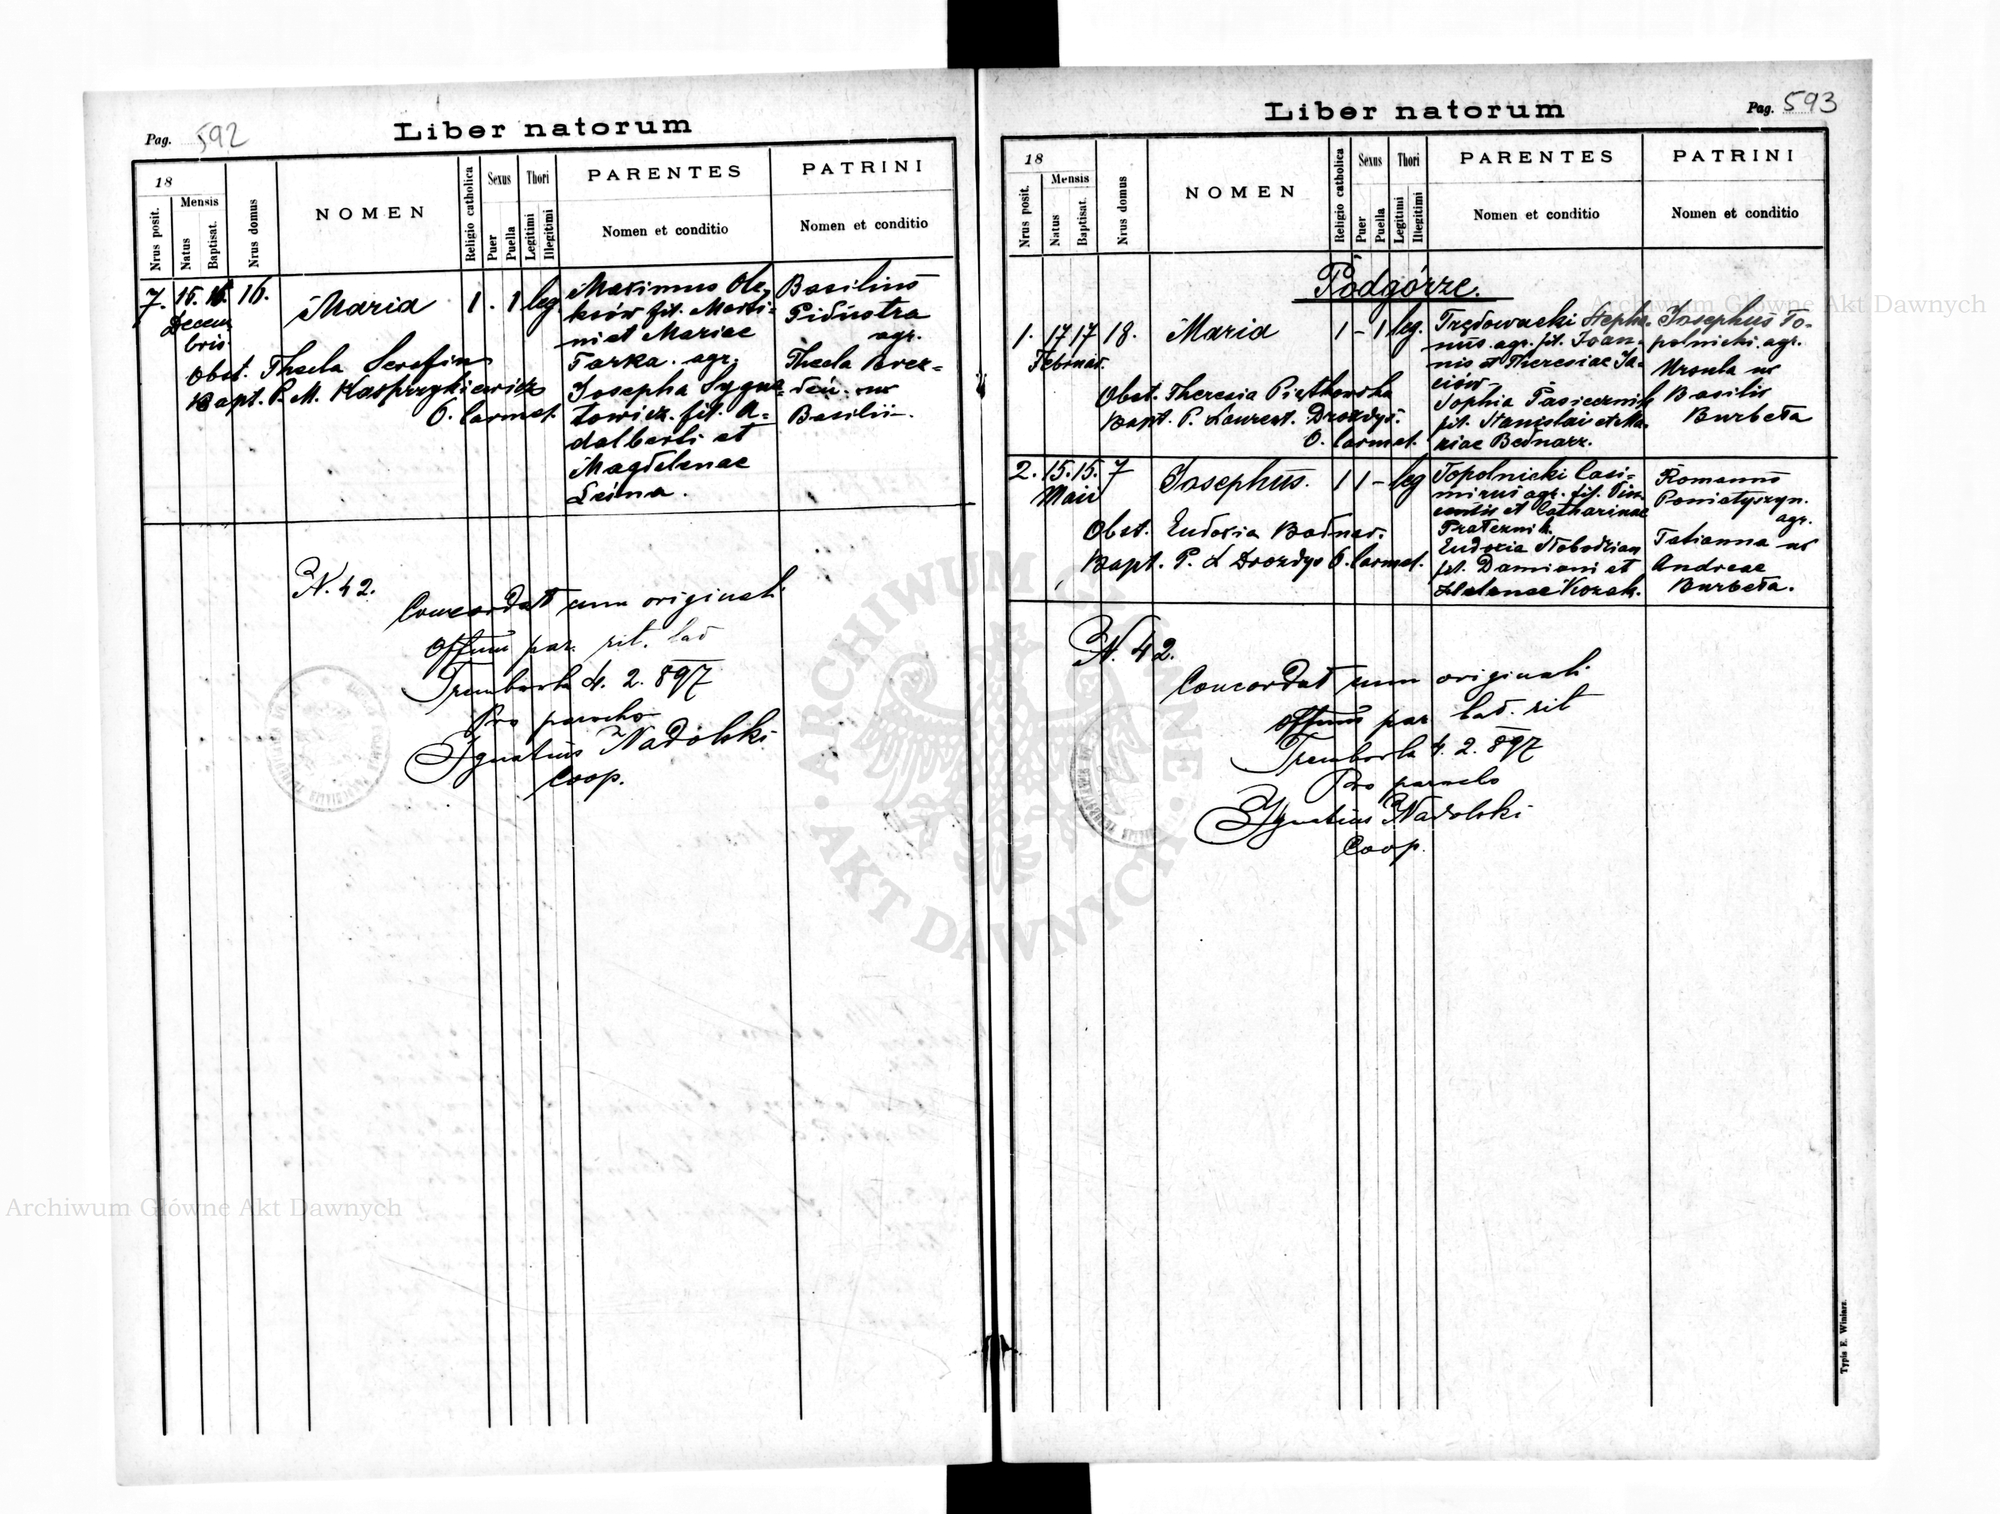 Pag. 592
Liber natorum
18
Nrus posit.
Mensis
Natus
Baptisat.
Nrus domus
NOMEN
Religio catholica
Sexus
Puer
Puella
Thori
Legitimi
Illegitimi
PARENTES
Nomen et conditio
PATRINI
Nomen et conditio
7. 15. 15. 16.
Decem
bris
Maria 1 . 1 leg
Obst. Thecla Serafin
Bapt. P. M. Kasprzykiewicz
O. Carmel.
Maximus Ole-
ksów fil. Marti-
ni et Mariae
Farka . agr.
Josepha Sygna-
towicz. fil. A-
dalberti et
Magdalenae
Basilius
Pidustra
agr.
Thecla
ux
Basilii
N. 42.
Concordat cum originali
Offium par. rit. lat
Trembowla 4. 2. 897
Pro parocho
Ignatius Nadolski
Coop.
Pag. 593
Liber natorum
18
Nrus posit.
Mensis
Natus
Baptisat.
Nrus domus
NOMEN
Religio catholica
Sexus
Puer
Puella
Thori
Legitimi
Illegitimi
PARENTES
Nomen et conditio
PATRINI
Nomen et conditio
Podgórze.
1. 17 17 18. Maria 1 – 1 leg.
Februar.
Obst. Theresia Piątkowska
Bapt. P. Laurent. Drozdys.
O. Carmel.
Trędowacki Stepha-
nus. agr. fil. Joan-
nis et Theresiae Ja-
ciów
Sophia Pasiecznik
fil. Stanislai et Ma-
riae Bednarz.
Josephus To-
polnicki. agr.
Ursula ux
Basilii
Burbeła
2. 15. 15. 7 Josephus. 1 1 – leg
Maii
Obst. Eudoxia Bodnar.
Bapt. P. L Drozdys O. Carmel.
Topolnicki Casi-
mirus agr. fil. Vin-
centii et Catharinae
Praternik.
Eudoxia Słobodzian
fil. Damiani et
Helenae Kozak.
Romanus
Poniatyszyn.
agr.
Tatianna ux
Andreae
Burbeła.
N. 42.
Concordat cum originali
Offium par lat. rit
Trembowla 4. 2. 897
Pro parocho
Ignatius Nadolski
Coop.
Typis E. Winiarz.
Archiwum Główne Akt Dawnych
Archiwum Główne Akt Dawnych
ARCHIWUM GŁÓWNE
AKT DAWNYCH